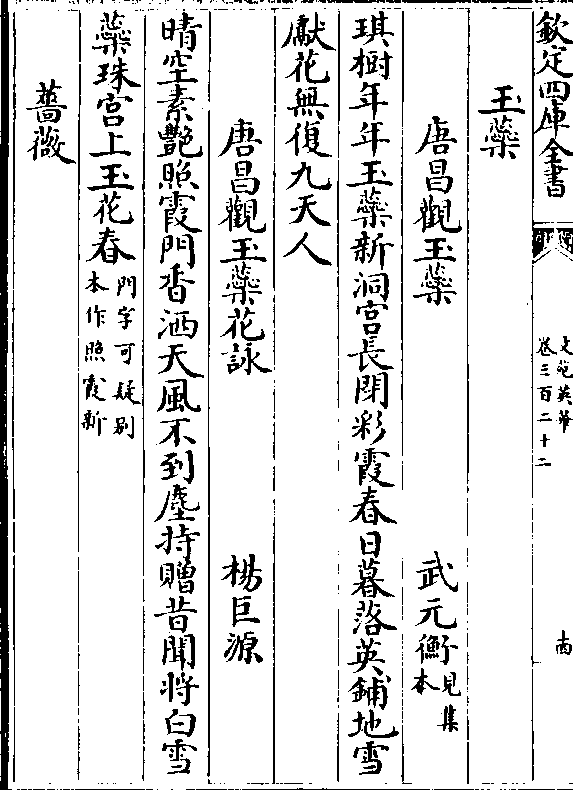 欽定四庫全書
文苑英華
卷三百二十二
玉蘂
唐昌觀玉蘂 武元衡見集本
琪樹年年玉蘂新洞宫長閉彩霞春日暮落英鋪地雪
獻花無復九天人
唐昌觀玉蘂花詠 楊巨源
晴空素艷照霞門香洒天風不到塵持贈昔聞將白雪
蘂珠宫上玉花春門字可疑别本作照霞新
薔薇